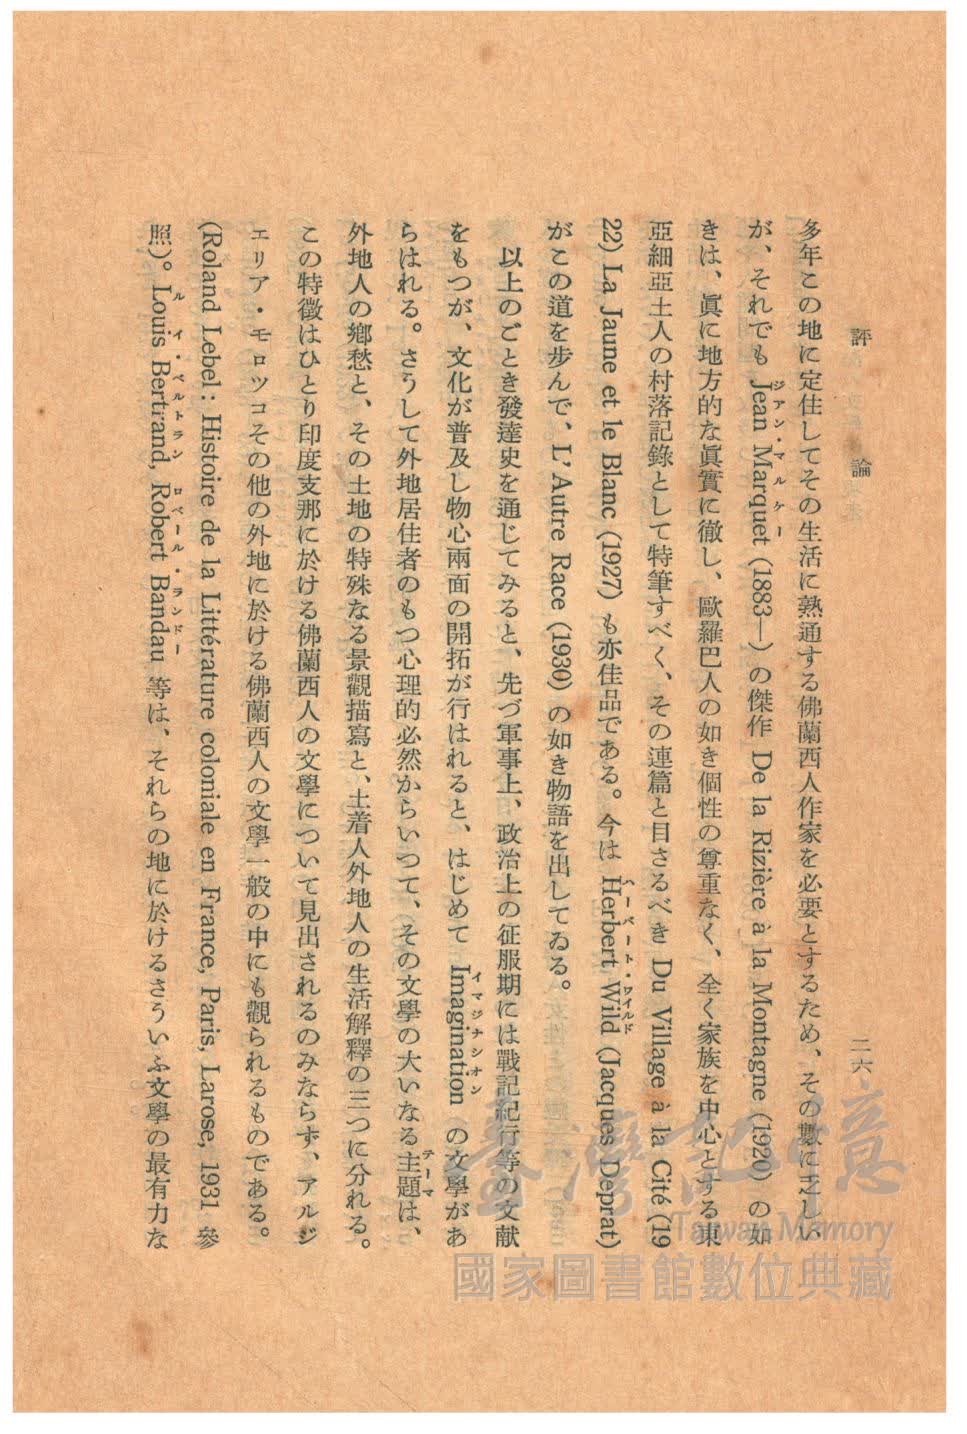 評論
二六
多年この地に定住してその生活に熟通する佛蘭西人作家を必要とするため、その數に乏しい
が、それでも Jean Marquet (1883―) の傑作 De la Rizière à la Montagne (1920) の如
ジアン・マルケー
きは、眞に地方的な眞實に徹し、歐羅巴人の如き個性の尊重なく、全く家族を中心とする東
亞細亞土人の村落記錄として特筆すべく、その連篇と目さるべき Du Village à la Cité (19
22) La Jaune et le Blanc (1927) も亦佳品である。今は Herbert Wild (Jacques Deprat)
がこの道を步んで、L'Autre Race (1930) の如き物語を出してゐる。
以上のごとき發達史を通じてみると、先づ軍事上、政治上の征服期には戰記紀行等の文献
をもつが、文化が普及し物心兩面の開拓が行はれると、はじめて Imagination の文學があ
イマジナシオン
らはれる。さうして外地居住者のもつ心理的必然からいつて、その文學の大いなる主題は、
テーマ
外地人の鄕愁と、その土地の特殊なる景觀描寫と、土着人外地人の生活解釋の三つに分れる。
この特徵はひとり印度支那に於ける佛蘭西人の文學について見出されるのみならず、アルジ
ェリア・モロツコその他の外地に於ける佛蘭西人の文學一般の中にも觀られるものである。
(Roland Lebel: Histoire de la Littérature coloniale en France, Paris, Larose, 1931 參
照)。Louis Bertrand, Robert Bandau 等は、それらの地に於けるさういふ文學の最有力な
ルイ・ベルトラン ロベール・ランドー
臺灣記憶
Taiwan Memory
國家圖書館數位典藏